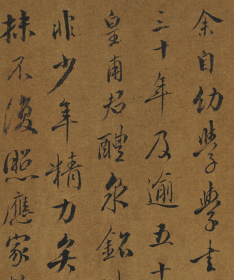 余自幼學書
三十年及逾五十
皇甫君醴泉銘
非少年精力矣
抹不復照應家